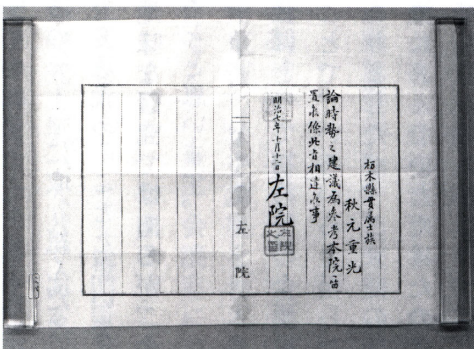 栃木縣貫属士族
秋元重光
論時勢之建議為参考本院留
置候條此旨相達候事
明治七年十月十二日
左院
左院之印
左院